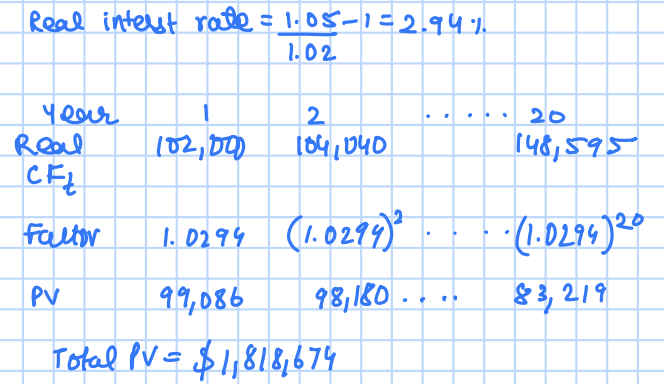 Real interest rate = 1.05/1.02 - 1 = 2.94 %
Year 1 2 ..... 20
Real CFt 102,000 104,040 148,595
Factor 1.0294 (1.0294)² .... (1.0294)²⁰
PV 99,086 98,180 .... 83,219
Total PV = $1,818,674